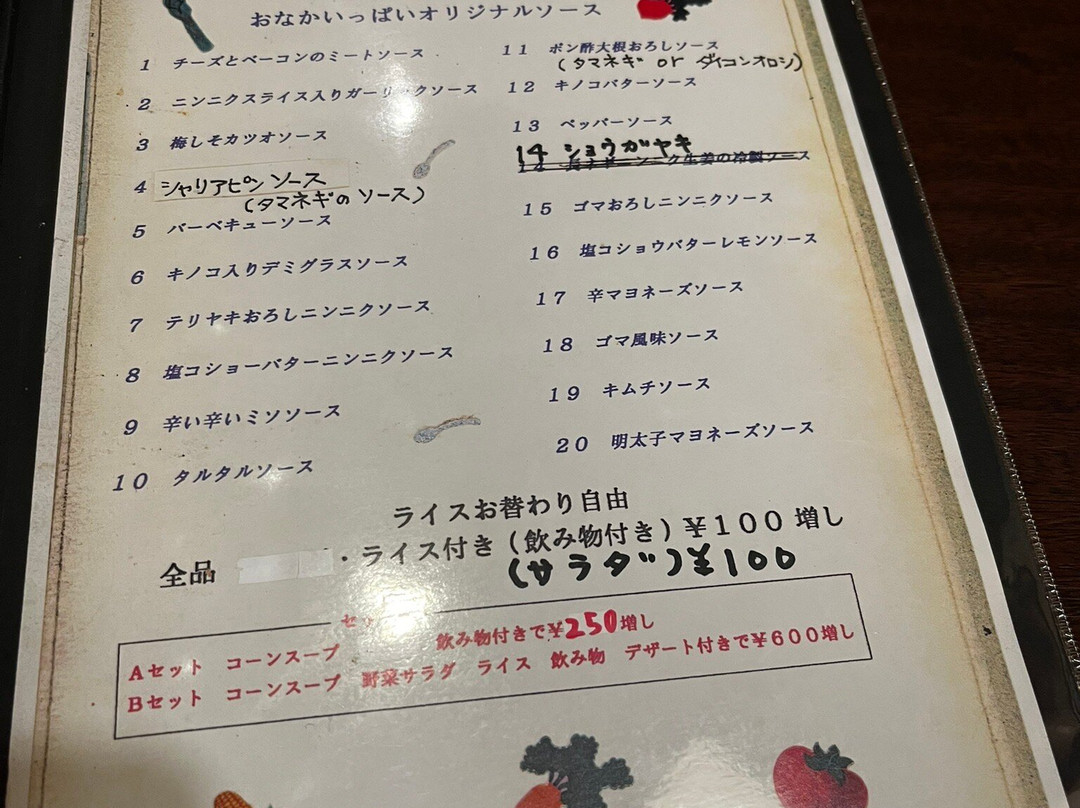 おなかいっぱいオリジナルソース
1 チーズとベーコンのミートソース
2 ニンニクスライス入りガーリックソース
3 梅しそカツオソース
4 シャリアピンソース
(タマネギのソース)
5 バーベキューソース
6 キノコ入りデミグラスソース
7 テリヤキおろしニンニクソース
8 塩コショーバターニンニクソース
9 辛い辛いミソソース
10 タルタルソース
11 ポン酢大根おろしソース
(タマネギ or ダイコンオロシ)
12 キノコバターソース
13 ペッパーソース
14 ショウガヤキ
15 ゴマおろしニンニクソース
16 塩コショウバターレモンソース
17 辛マヨネーズソース
18 ゴマ風味ソース
19 キムチソース
20 明太子マヨネーズソース
ライスお替わり自由
全品 ・ライス付き(飲み物付き)¥100増し
(サラダ)¥100
セッ
Aセット コーンスープ 飲み物付きで¥250増し
Bセット コーンスープ 野菜サラダ ライス 飲み物 デザート付きで¥600増し